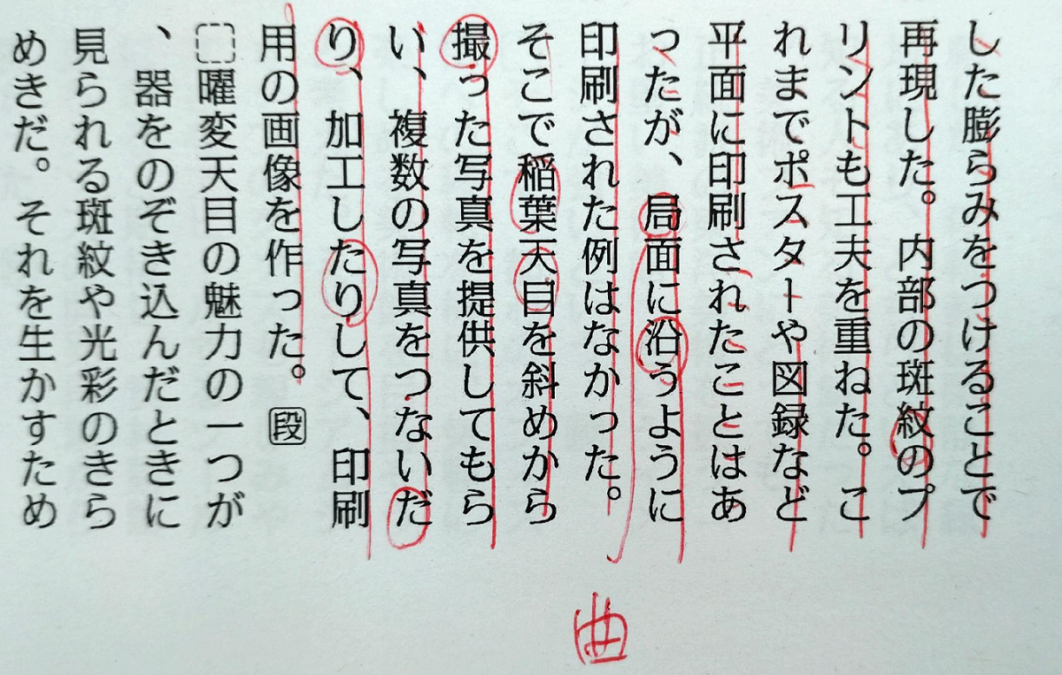 した膨らみをつけることで
再現した。内部の斑紋のプ
リントも工夫を重ねた。こ
れまでポスターや図録など
平面に印刷されたことはあ
ったが、局面に沿うように
印刷された例はなかった。
そこで稲葉天目を斜めから
撮った写真を提供してもら
い、複数の写真をつないだ
り、加工したりして、印刷
用の画像を作った。段
曜変天目の魅力の一つが
、器をのぞき込んだときに
見られる斑紋や光彩のきら
めきだ。それを生かすため
曲